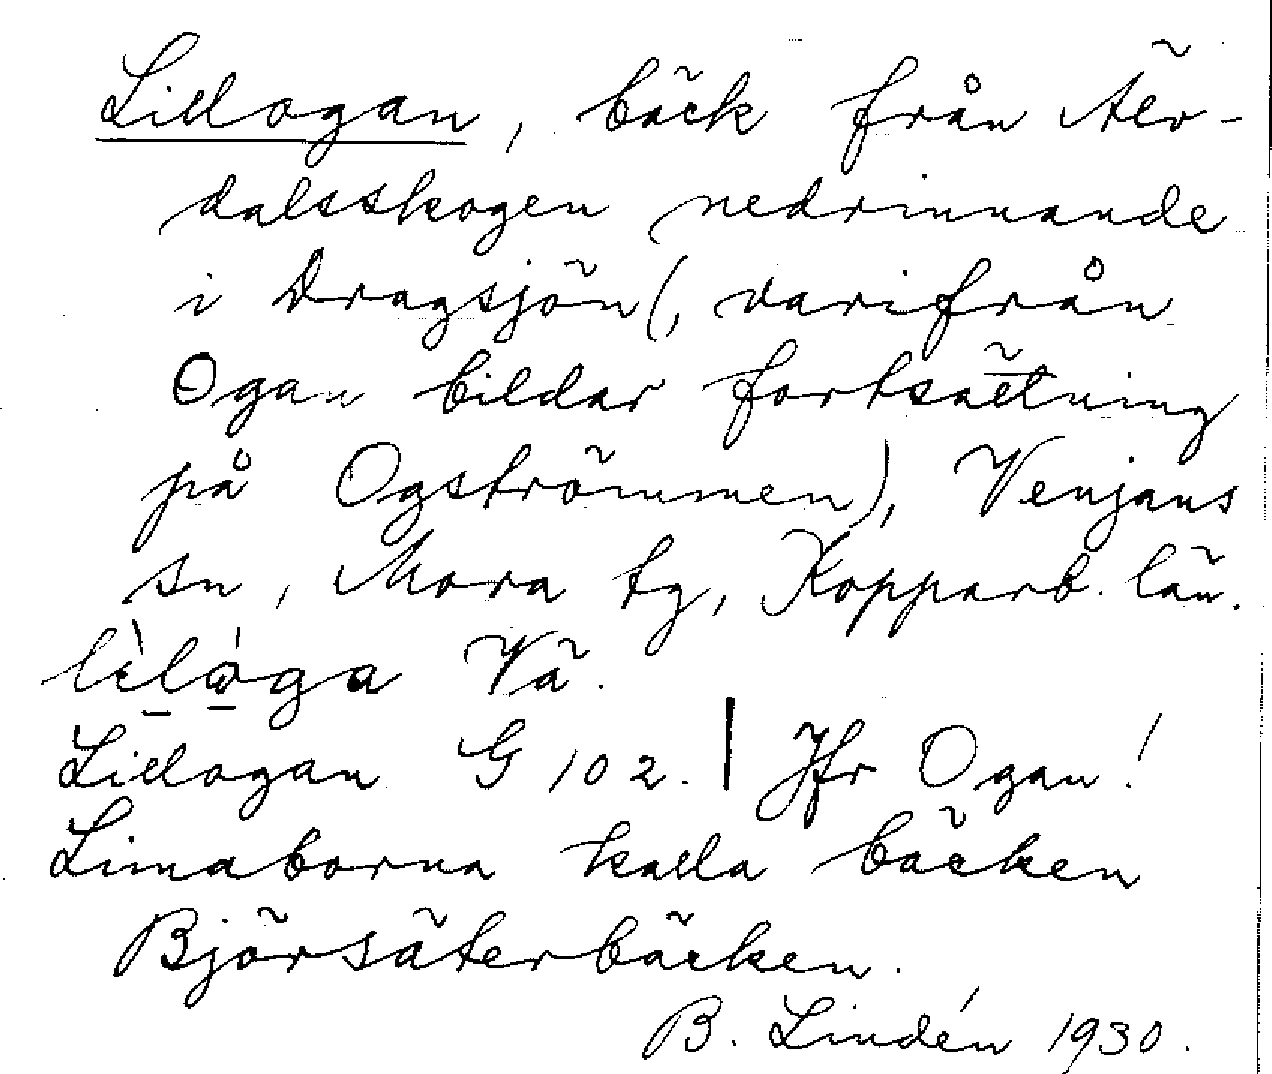 Lillogan, bäck från Älv-
dalsskogen nedrinnande
i Dragsjön (, varifrån
Ogan bildar fortsättning
på Ogströmmen), Venjans
sn, Mora tg, Kopparb. län.
lìlóga Vä.
Lillogan G 102. | Jfr Ogan!
Limaborna kalla bäcken
Björsäterbäcken.
B. Lindén 1930.